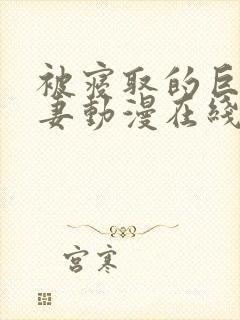 被寝取的巨
妻動漫在綫
宫寒